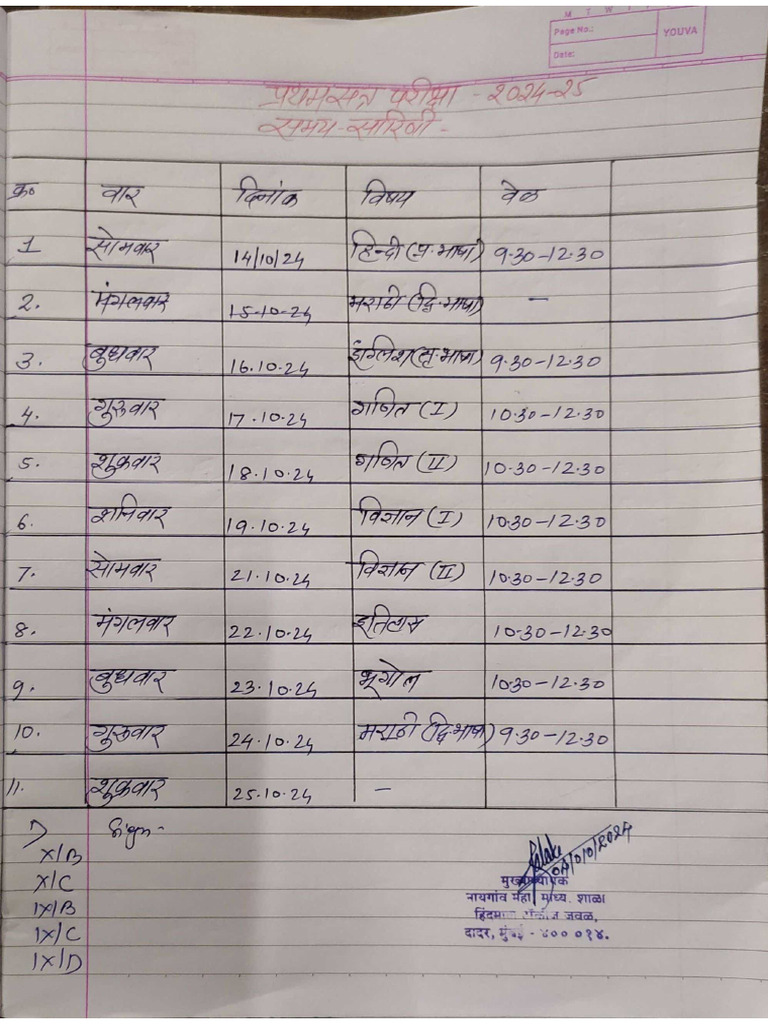 M T W T
Page No.:
YOUVA
Date:
प्रथमसत्र परीक्षा - 2024-25
समय-सारिणी -
क्र० वार दिनांक विषय वेळ
1 सोमवार 14/10/24 हिन्दी (प्र.भाषा) 9.30-12.30
2. मंगलवार 15-10-24 मराठी (द्वि.भाषा) -
3. बुधवार 16.10.24 इंग्लिश (तृ.भाषा) 9.30-12.30
4. गुरुवार 17.10.24 गणित (I) 10.30-12.30
5. शुक्रवार 18.10.24 गणित (II) 10.30-12.30
6. शनिवार 19.10.24 विज्ञान (I) 10.30-12.30
7. सोमवार 21.10.24 विज्ञान (II) 10.30-12.30
8. मंगलवार 22.10.24 इतिहास 10.30-12.30
9. बुधवार 23.10.24 भूगोल 10.30-12.30
10. गुरुवार 24.10.24 मराठी (द्वि.भाषा) 9.30-12.30
11. शुक्रवार 25.10.24 -
Sign -
X/B
X/C
IX/B
IX/C
IX/D
/10/2024
मुख्याध्यापक
नायगांव महा. माध्य. शाळा
जवळ,
दादर, मुंबई - ४०० ०१४.